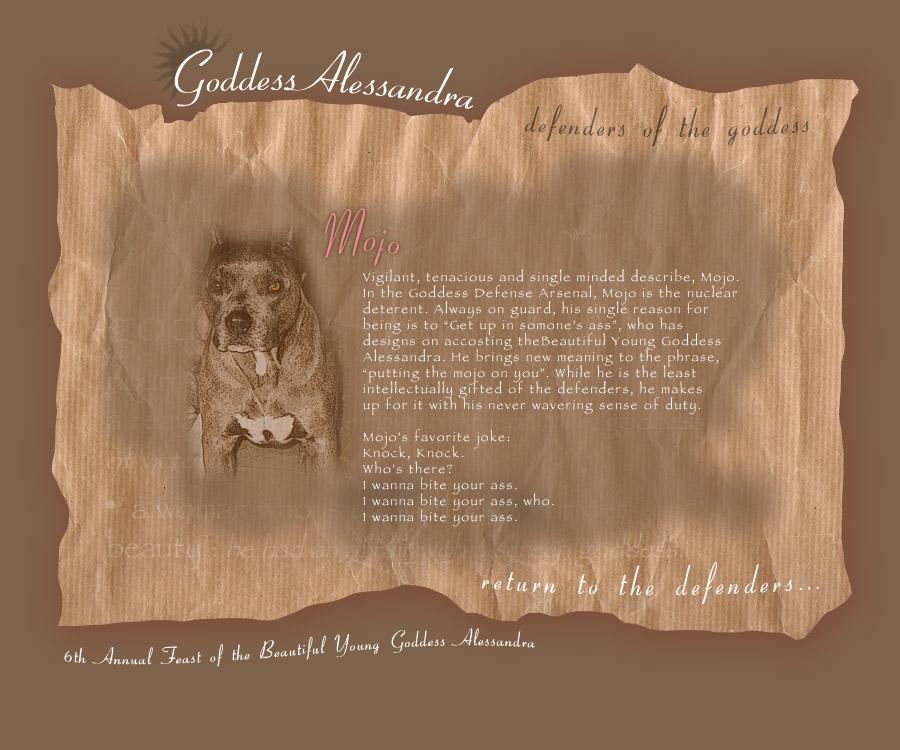 Goddess Alessandra
defenders of the goddess
Mojo
Vigilant, tenacious and single minded describe, Mojo.
In the Goddess Defense Arsenal, Mojo is the nuclear
deterent. Always on guard, his single reason for
being is to “Get up in somone’s ass”, who has
designs on accosting theBeautiful Young Goddess
Alessandra. He brings new meaning to the phrase,
“putting the mojo on you”. While he is the least
intellectually gifted of the defenders, he makes
up for it with his never wavering sense of duty.
Mojo’s favorite joke:
Knock, Knock.
Who’s there?
I wanna bite your ass.
I wanna bite your ass, who.
I wanna bite your ass.
beauty : he had an with a screen goddess
return to the defenders...
6th Annual Feast of the Beautiful Young Goddess Alessandra